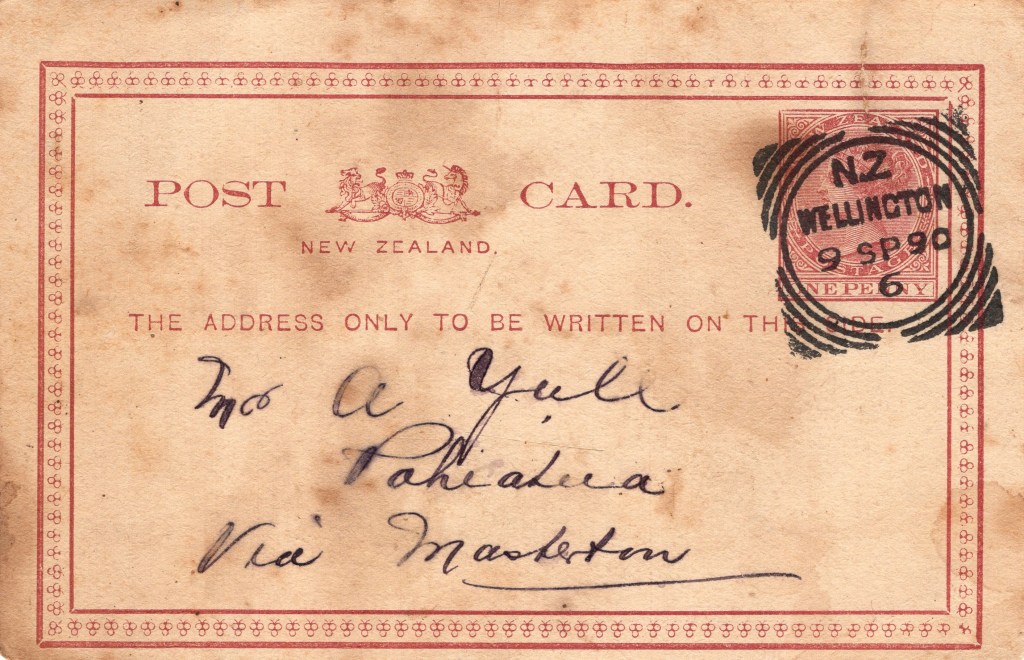 POST CARD.
NEW ZEALAND.
NEW ZEALAND
POSTAGE
ONE PENNY
N.Z
WELLINGTON
9 SP 90
6
THE ADDRESS ONLY TO BE WRITTEN ON THIS SIDE.
Mr A Yule
Pahiatua
Via Masterton